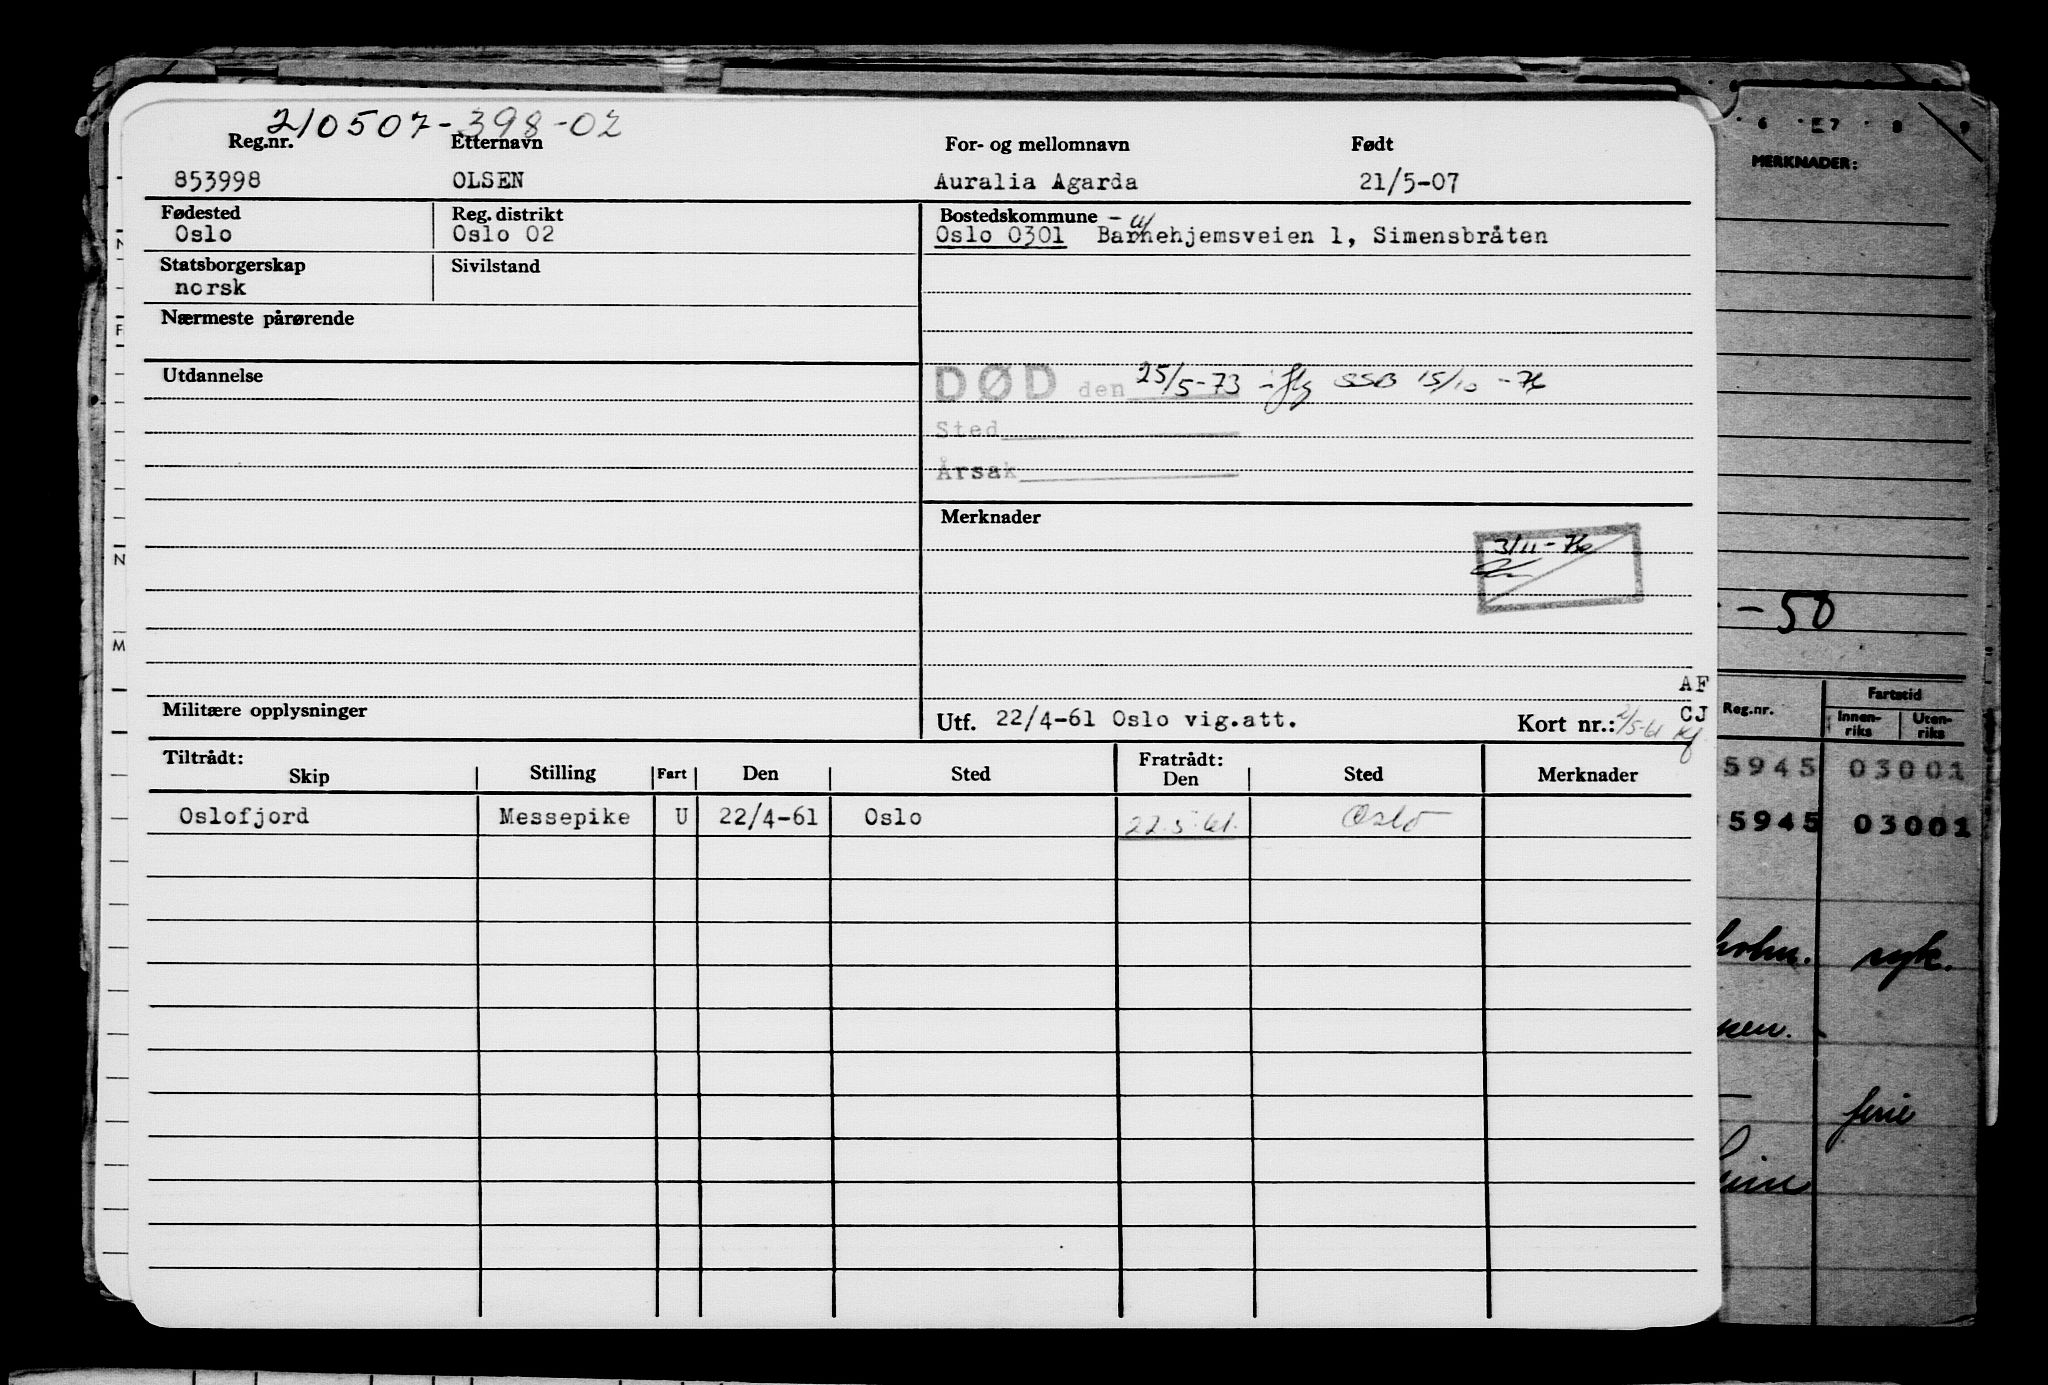 210507-398-02
Reg.nr. Etternavn For- og mellomnavn Født
853998 OLSEN Auralia Agarda 21/5-07
Fødested Reg. distrikt Bostedskommune
Oslo Oslo 02 Oslo 0301 Barnehjemsveien 1, Simensbråten
Statsborgerskap Sivilstand
norsk
Nærmeste pårørende
Utdannelse
DØD den 25/5-73 - flg SSB 15/10 -76
Sted
Årsak
Merknader
3/11-76
AF
Militære opplysninger Utf. 22/4-61 Oslo vig.att. Kort nr.: 2/5-61 CJ
Tiltrådt: Fratrådt:
Skip Stilling Fart Den Sted Den Sted Merknader
Oslofjord Messepike U 22/4-61 Oslo 22.5.61. Oslo
6 E7 8 9
MERKNADER:
- -50
Reg.nr. Fartstid
Innen-riks Uten-riks
5945 03001
5945 03001
holm. syk.
ken.
ferie
N
F
N
M